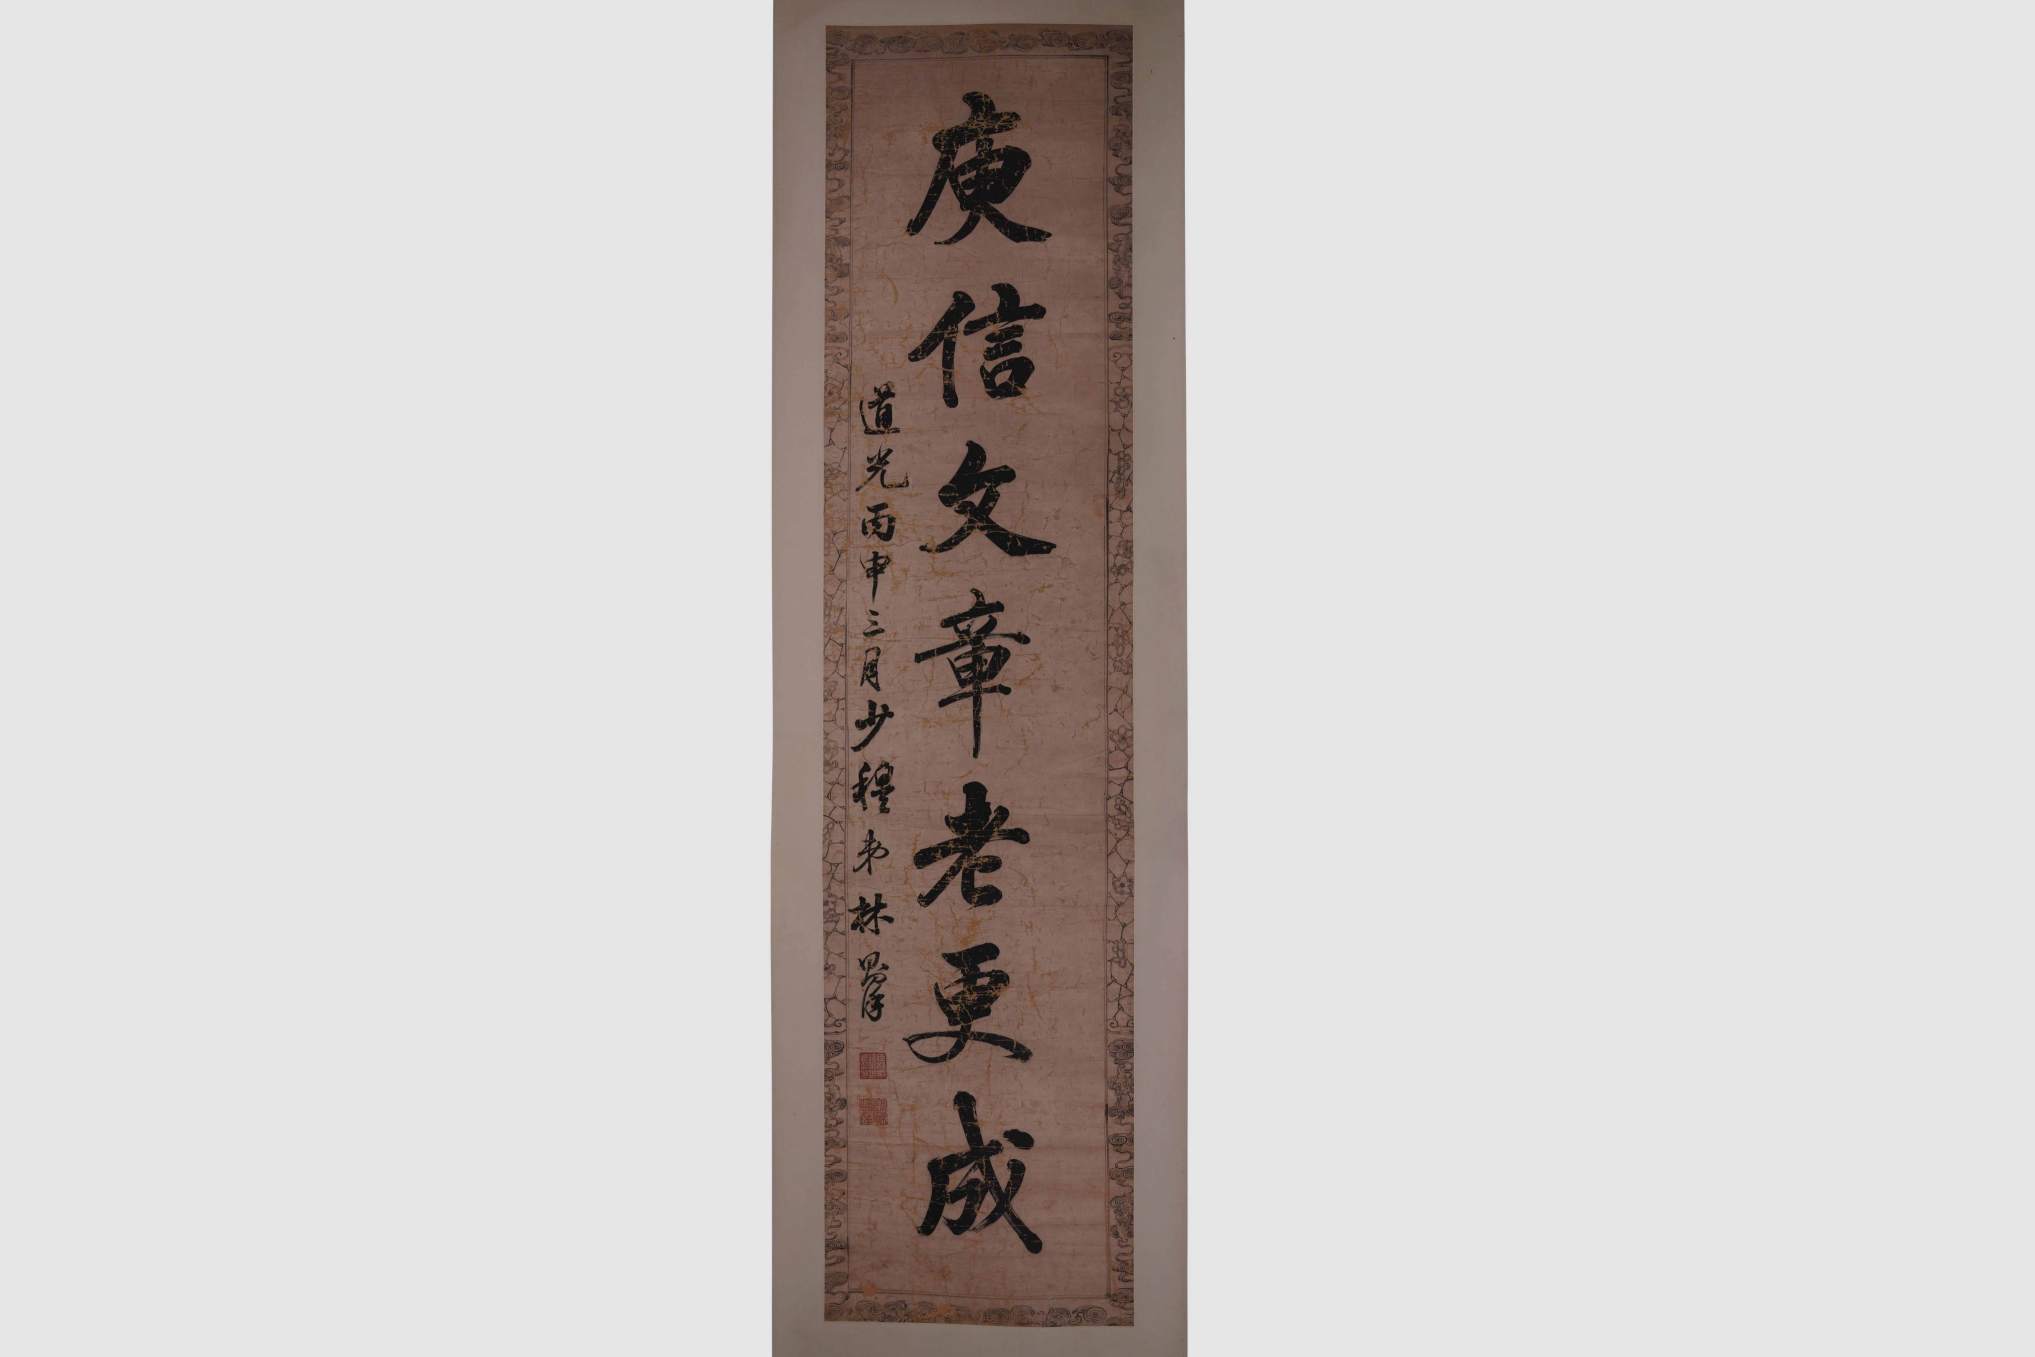 庾信文章老更成
道光丙申三月少穆弟林則徐